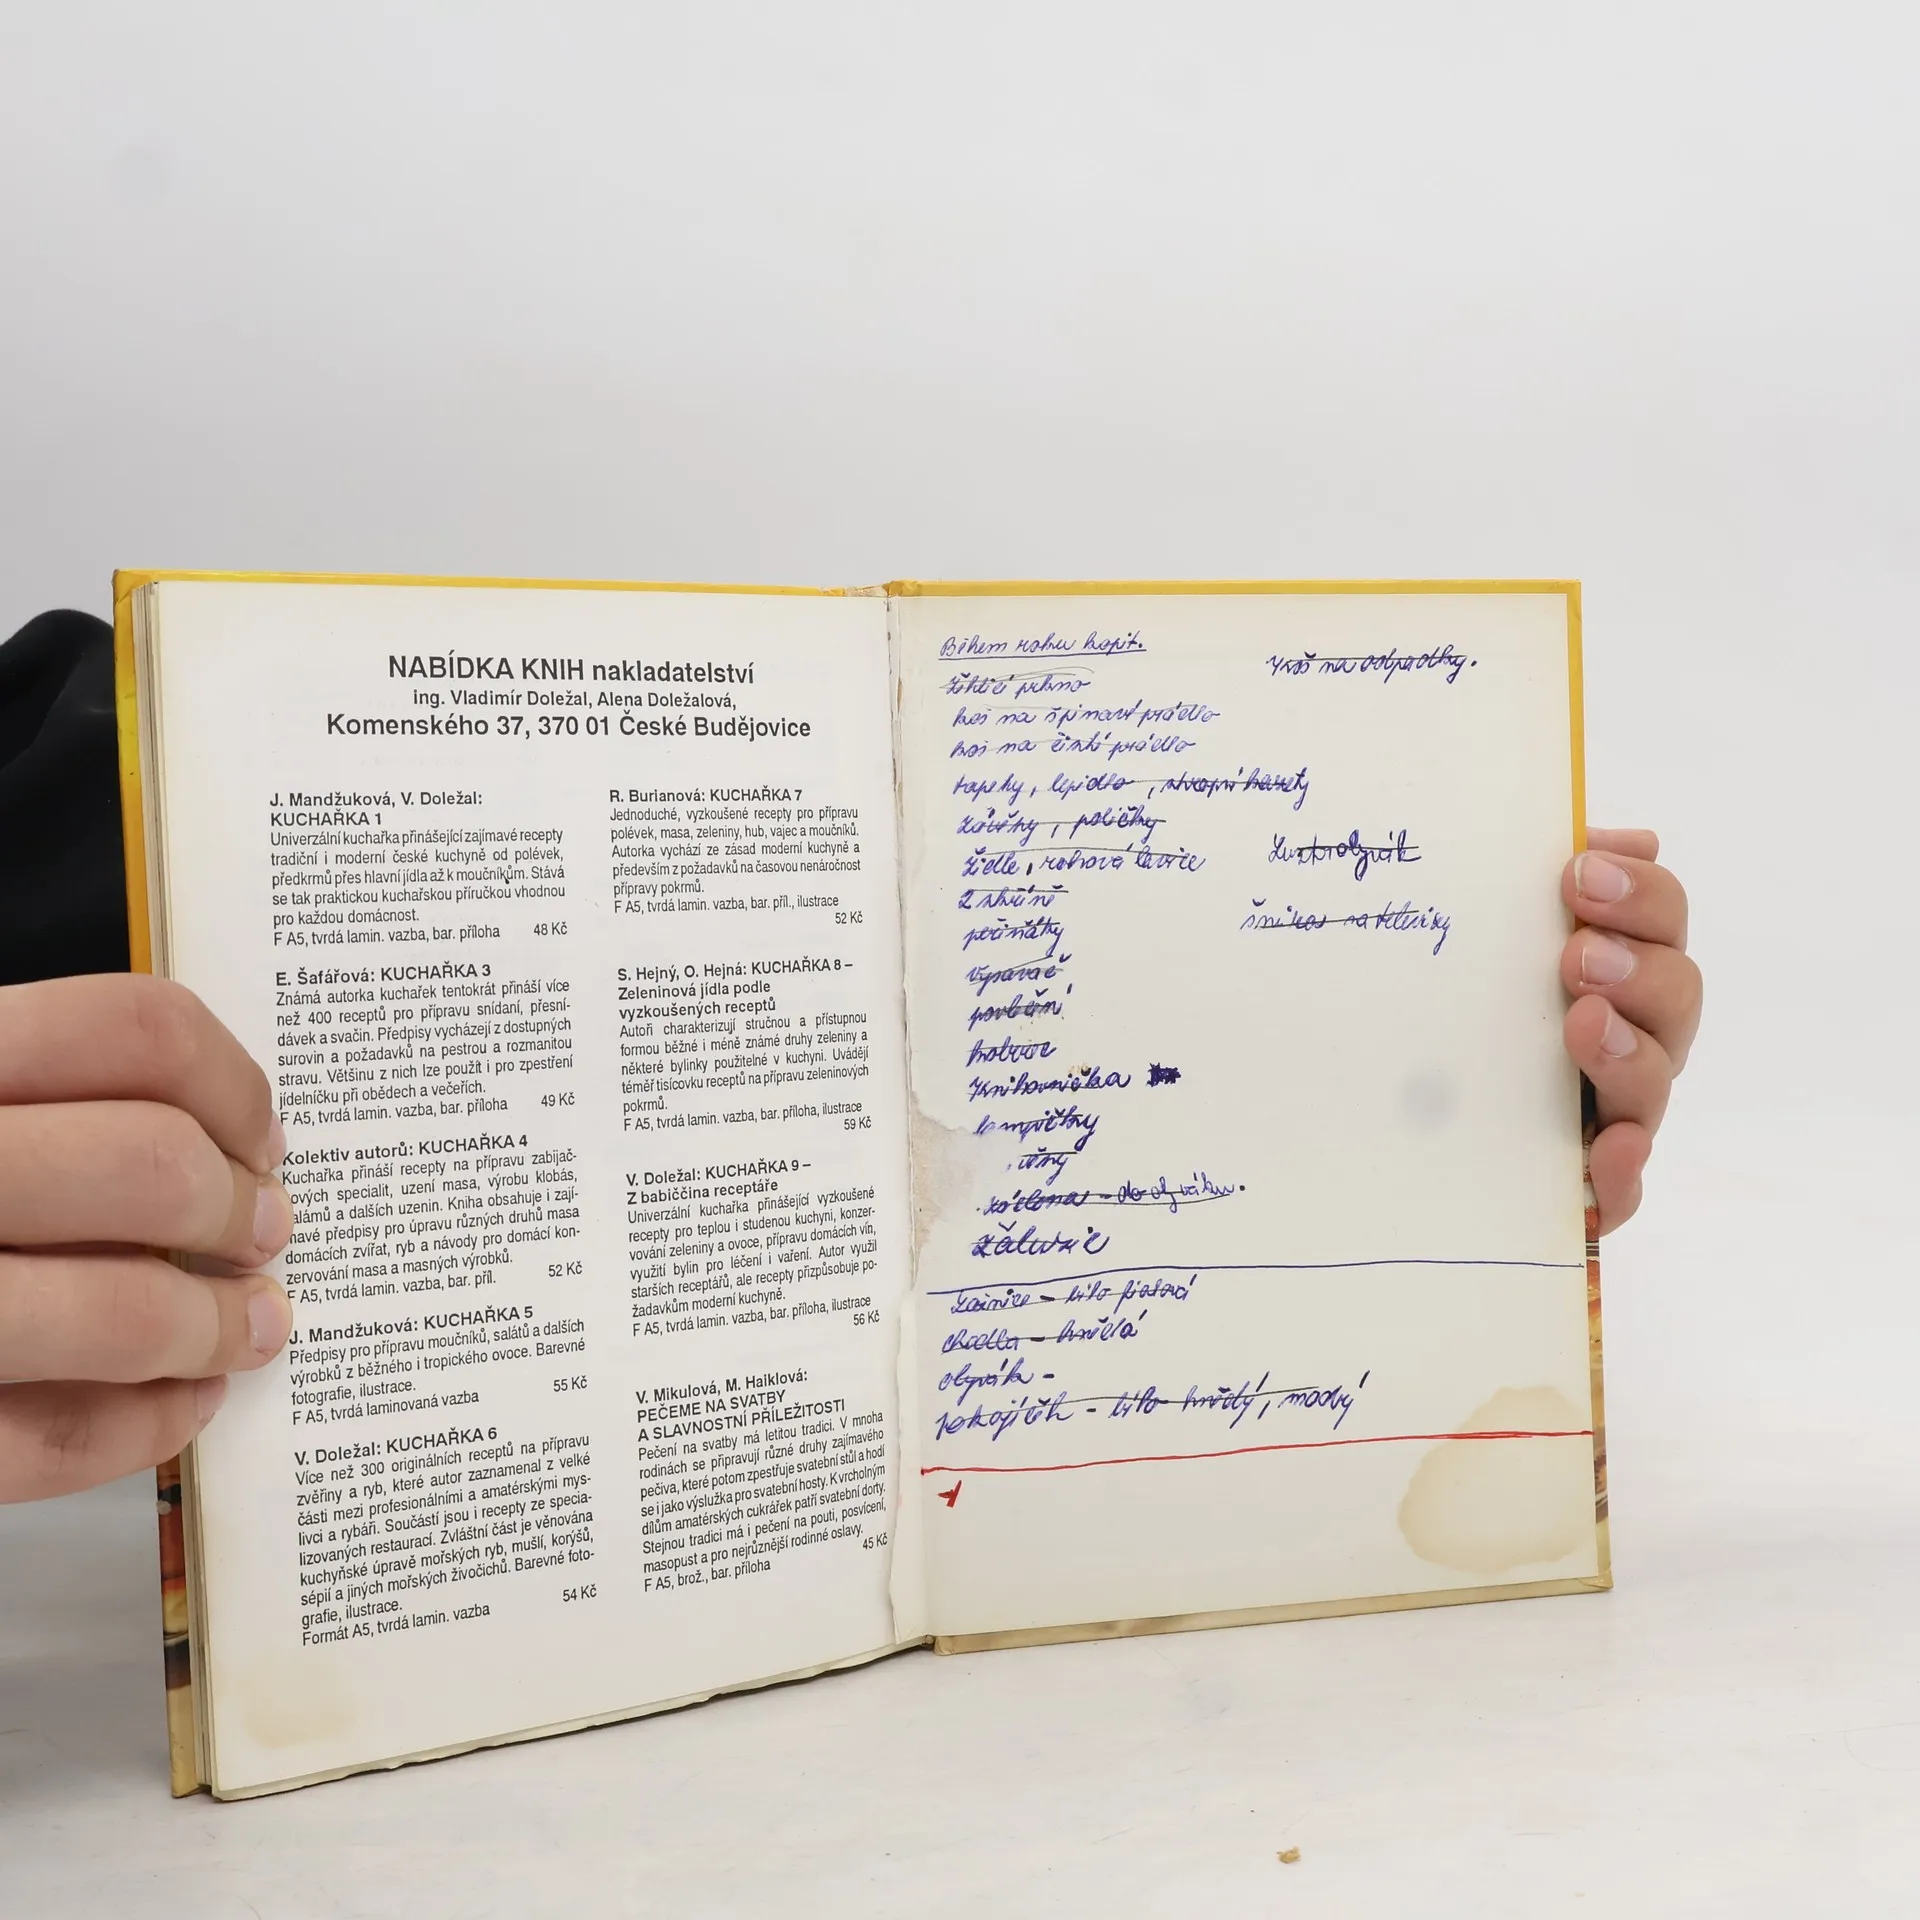 NABÍDKA KNIH nakladatelství
ing. Vladimír Doležal, Alena Doležalová,
Komenského 37, 370 01 České Budějovice
J. Mandžuková, V. Doležal:
KUCHAŘKA 1
Univerzální kuchařka přinášející zajímavé recepty
tradiční i moderní české kuchyně od polévek,
předkrmů přes hlavní jídla až k moučníkům. Stává
se tak praktickou kuchařskou příručkou vhodnou
pro každou domácnost.
F A5, tvrdá lamin. vazba, bar. příloha 48 Kč
E. Šafářová: KUCHAŘKA 3
Známá autorka kuchařek tentokrát přináší více
než 400 receptů pro přípravu snídaní, přesní-
dávek a svačin. Předpisy vycházejí z dostupných
surovin a požadavků na pestrou a rozmanitou
stravu. Většinu z nich lze použít i pro zpestření
jídelníčku při obědech a večeřích.
F A5, tvrdá lamin. vazba, bar. příloha 49 Kč
Kolektiv autorů: KUCHAŘKA 4
Kuchařka přináší recepty na přípravu zabijač-
ových specialit, uzení masa, výrobu klobás,
alámů a dalších uzenin. Kniha obsahuje i zají-
mavé předpisy pro úpravu různých druhů masa
domácích zvířat, ryb a návody pro domácí kon-
zervování masa a masných výrobků.
F A5, tvrdá lamin. vazba, bar. příl. 52 Kč
J. Mandžuková: KUCHAŘKA 5
Předpisy pro přípravu moučníků, salátů a dalších
výrobků z běžného i tropického ovoce. Barevné
fotografie, ilustrace.
F A5, tvrdá laminovaná vazba 55 Kč
V. Doležal: KUCHAŘKA 6
Více než 300 originálních receptů na přípravu
zvěřiny a ryb, které autor zaznamenal z velké
části mezi profesionálními a amatérskými mys-
livci a rybáři. Součástí jsou i recepty ze specia-
lizovaných restaurací. Zvláštní část je věnována
kuchyňské úpravě mořských ryb, mušlí, korýšů,
sépií a jiných mořských živočichů. Barevné foto-
grafie, ilustrace.
Formát A5, tvrdá lamin. vazba 54 Kč
R. Burianová: KUCHAŘKA 7
Jednoduché, vyzkoušené recepty pro přípravu
polévek, masa, zeleniny, hub, vajec a moučníků.
Autorka vychází ze zásad moderní kuchyně a
především z požadavků na časovou nenáročnost
přípravy pokrmů.
F A5, tvrdá lamin. vazba, bar. příl., ilustrace
52 Kč
S. Hejný, O. Hejná: KUCHAŘKA 8 –
Zeleninová jídla podle
vyzkoušených receptů
Autoři charakterizují stručnou a přístupnou
formou běžné i méně známé druhy zeleniny a
některé bylinky použitelné v kuchyni. Uvádějí
téměř tisícovku receptů na přípravu zeleninových
pokrmů.
F A5, tvrdá lamin. vazba, bar. příloha, ilustrace
59 Kč
V. Doležal: KUCHAŘKA 9 –
Z babiččina receptáře
Univerzální kuchařka přinášející vyzkoušené
recepty pro teplou i studenou kuchyni, konzer-
vování zeleniny a ovoce, přípravu domácích vín,
využití bylin pro léčení i vaření. Autor využil
starších receptářů, ale recepty přizpůsobuje po-
žadavkům moderní kuchyně.
F A5, tvrdá lamin. vazba, bar. příloha, ilustrace
56 Kč
V. Mikulová, M. Haiklová:
PEČEME NA SVATBY
A SLAVNOSTNÍ PŘÍLEŽITOSTI
Pečení na svatby má letitou tradici. V mnoha
rodinách se připravují různé druhy zajímavého
pečiva, které potom zpestřuje svatební stůl a hodí
se i jako výslužka pro svatební hosty. K vrcholným
dílům amatérských cukrářek patří svatební dorty.
Stejnou tradici má i pečení na pouti, posvícení,
masopust a pro nejrůznější rodinné oslavy.
F A5, brož., bar. příloha 45 Kč
Během roku kopit.
koš na odpadky.
Žehlící prkno
koš na špinavé prádlo
koš na čisté prádlo
tapety, lepidlo, stropní kazety
závěsy, poličky
židle, rohová lavice
2 skříně
peřiňáky
vysavač
povlečení
koberec
knihovnička
lampičky
věny
záclona - do obýváku.
Žaluzie
ložnice - bílo fialová
chodba - hnědá
obývák -
pokojíček - bílo hnědý, modrý